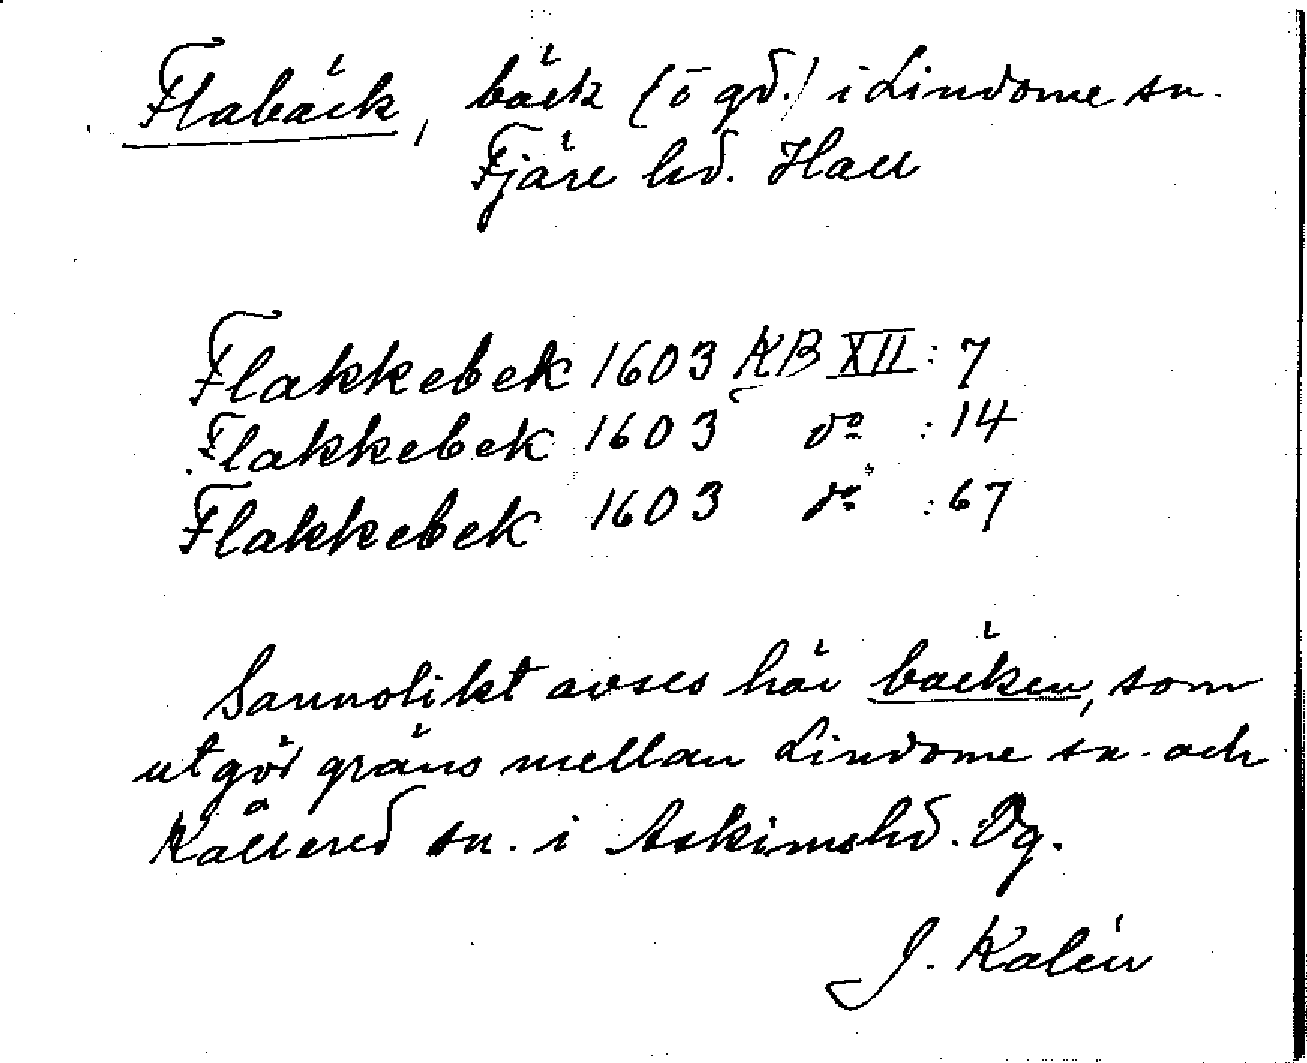 Flabäck, bäck (ö gd.) i Lindome sn.
Fjäre hd. Hall
Flakkebek 1603 KB XII: 7
Flakkebek 1603 do : 14
Flakkebek 1603 do : 67
Sannolikt avses här bäcken, som
utgör gräns mellan Lindome sn. och
Kållered sn. i Askims hd. Vg.
J. Kalén